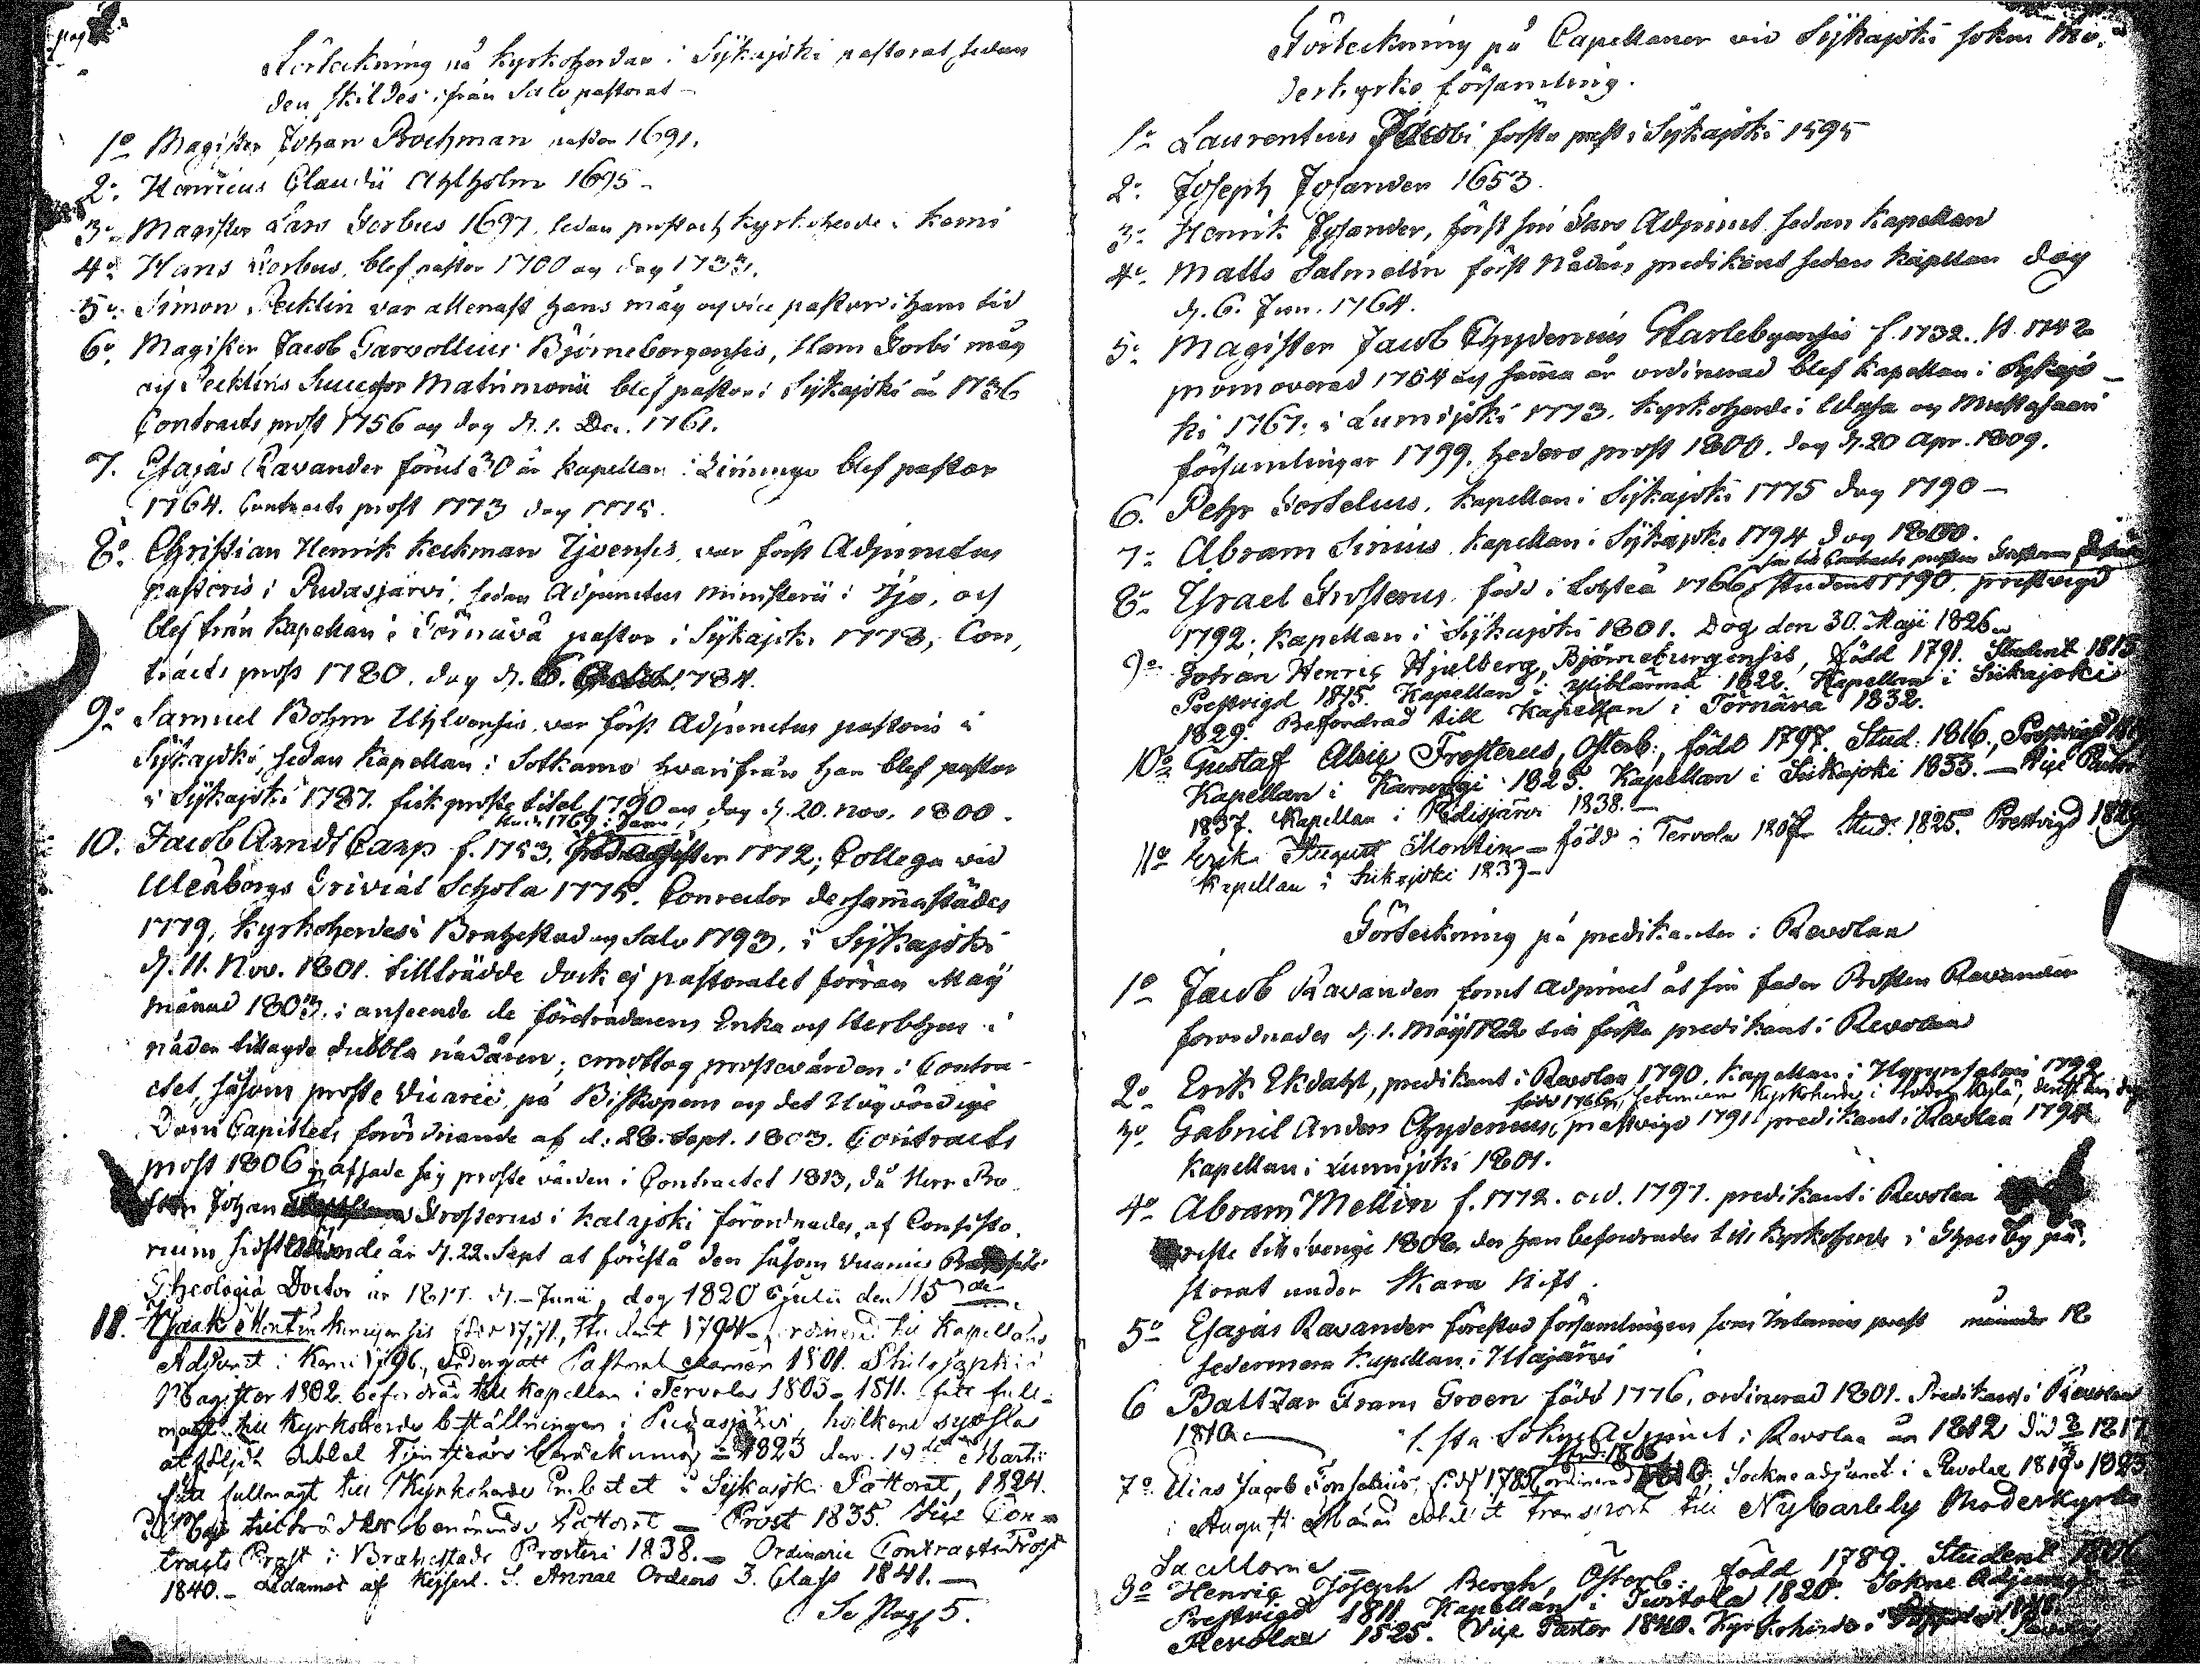 pag
Förteckning på Kyrkoherdar i Sijkajoki pastorat, sedan
den skildes ifrån Salo pastorat -
1o Magister Johan Prochman pastor 1691.
2o. Henricus Claudii Ahlholm 1695 -
3o. Magister Lars Forbus 1697, sedan prost och Kyrkoherde i Kemi
4o. Hans Forbus, blef pastor 1700 og dog 1733.
5o. Simon Pecklin var allenast hans måg og vice pastor i hans tid
6o. Magister Jacob Garvollius Björneborgensis, Ham Forbi måg
og Pecklins Successor Matrimonii blef pastor i Sijkajoki år 1736
Contracts prost 1756 og dog d. 1. Dec. 1761.
7. Esajas Ravander förut 30 år Kapellan i Limingo blef pastor
1764. Contracts prost 1773 dog 1775.
8o. Christian Henrik Keckman Ijoensis, var först Adjunctus
pastoris i Pudasjärvi, sedan Adjunctus Ministerii i Ijo, och
blef från Kapellan i Törnävä pastor i Sijkajoki 1778, Con,
tracts prost 1780, dog d. 6. 1784.
9o. Samuel Bohm Uhlvensis, var först Adjunctus pastoris i
Sijkajoki, sedan Kapellan i Sotkamo hvarifrån han blef pastor
i Sijkajoki 1787. fick proste titel 1790 og dog d. 20. Nov. 1800.
10. Jacob Arndt Carp f. 1753, Stud. 1769: Magister 1772; Collega vid
Uleåborgs Trivial Schola 1775. Conrector dersammastädes
1779, Kyrkoherde i Brahestad og Salo 1793, i Sijkajoki
d. 11. Nov. 1801. tillträdde dock ej pastoratet förrän Maij
månad 1803, i anseende de företrädarens Enka och Sterbhus i
nåder tillagde dubbla nådåren; emottog prostevården i Contra-
ctet, såsom proste Vicarie på Biskopens og det Högvördige
Dom Capitlets förordnande af d. 28. Sept. 1803. Contracts
prost 1806, afsade sig proste vården i Contractet 1813, då Herr Pro
sten Johan Frosterus i Kalajoki förordnades, af Consisto,
rium d. 22. Sept at förestå den såsom Vicarius
Theologiä Doctor år 1817. d. - Junii, dog 1820 Julii den 15 de
11. Isaak Montin Kemiensis född 1771, Student 1794 ordinerad til Kapellans
Adjunct i Kemi 1796, Undergått Pastoral Examen 1801. Philosophiä
Magister 1802. befordrad till Kapellan i Tervola 1803 - 1811. fått full-
magt till Kyrkoherde beställningen i Pudasjärvi, hvilken syssla
dubbel Tjensteårs beräkning = 1823 den 19 de Martii
fått fullmagt till Kyrkoherde Embetet i Sijkajoki Pastorat, 1824.
tillträdde benämnde Pastorat - Prost 1835. Vice Con=
tracts Prost i Brahestads Prosteri 1838. - Ordinarie Contracts Prost
1840. - Ledamot af Kejserl. S. Annae Ordens 3. Class 1841. -
Se Pag. 5.
Förteckning på Capellaner vid Sijkajoki sokns Mo-
derkyrko församling.
1o. Laurentius Jacobi första prest i Sijkajoki 1595
2o. Joseph Josander 1653.
3o. Henrik Josander, först sin Fars Adjunct sedan Kapellan
4o. Matts Salmelin först Nådårs predikant sedan Kapellan dog
d. 6. Jun. 1764.
5o. Magister Jacob Chydenius Gbarlebyensis f. 1732. St. 1748
promoverad 1754 og samma år ordinerad blef Kapellan i Sijkajo-
ki 1767; i Lumijoki 1773. Kyrkoherde i Wasa og Mustasaari
församlingar 1799, heders prost 1800. dog d. 20 Apr. 1809.
6. Pehr Forselius, Kapellan i Sijkajoki 1775 dog 1790 -
7o Abram Sirnius Kapellan i Sijkajoki 1794 dog 1800.
8o Israel Frosterus, född i Lohteå 1766, Student 1790, prestvigd
1792; Kapellan i Sijkajoki 1801. Dog den 30. Maji 1826.
9o. Johan Henric Hjulberg, Björneburgensis, född 1791. Student 1813
Prestvigd 1815. Kapellan i Ylihärmä 1822. Kapellan i Siikajoki
1829. Befordrad till Kapellan i Törnäva 1832.
10o Gustaf Frosterus, Österb:, född 1797. Stud: 1816, Prestvigd
Kapellan i 1825. Kapellan i Siikajoki 1833. - Vice Pastor
1837. Kapellan i Pidisjärvi 1838. -
11o Erik August Montin - född i Tervola 1807 Stud: 1825. Prestvigd 1829
Kapellan i Siikajoki 1839 -
Förteckning på predikanter i Revolax
1o Jacob Ravander förut Adjunct åt sin fader Prosten Ravander
förordnades d. 1. Maij 1782 til första predikant i Revolax
2o Erik Ekdahl, predikant i Revolax 1790, Kapellan i Hyrynsalmi 1799
född 1766,
3o Gabriel Anders Chydenius, prestvigd 1791 predikant i Revolax 1798
Kapellan i Lumijoki 1801.
4o Abram Mellin f. 1772. ord. 1797. predikant i Revolax
reste till Sverige 1808 der han befordrades till Kyrkoherde i Husby pa-
storat under Skara Stift.
5o Esajas Ravander förestod församlingen som Interims prest månader 18
sedermera Kapellan i Utajärvi
6 Baltzar Frans Groen född 1776, ordinerad 1801. Predikant i Revolax
1810 1.sta Sokne Adjunct i Revolax år 1812 Död 1817
7o. Elias Jacob Forselius, född 1785 Stud: 1806 ordinerad 1810. Sockne adjunct i Revolax 1819 - 1823
i Augusti Månad erhållit transport till Nycarleby Moderkyrka
Sacellanie
8o Henric Joseph Bergh, Österb: född 1789. Student 1806
Prestvigd 1811. Kapellan i Turtola 1820. Sokne Adjunct i
Revolax 1825. Vice Pastor 1840. Kyrkoherde i